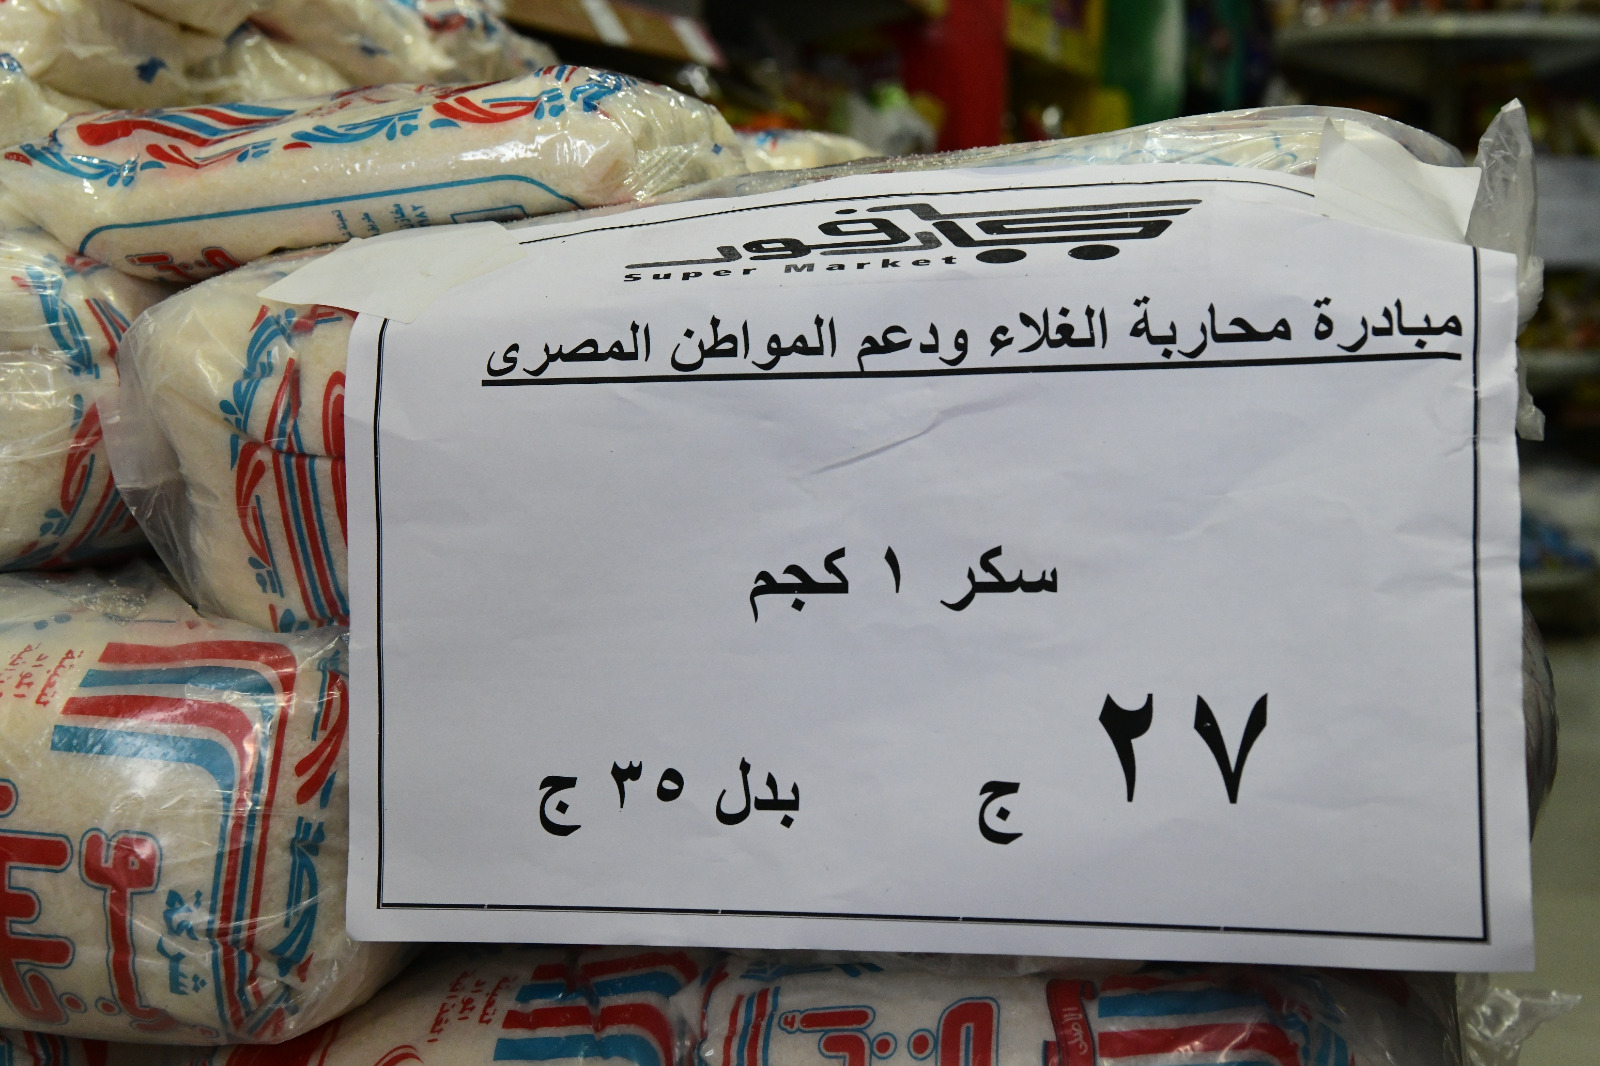 جبارفور
Super Market
مبادرة محاربة الغلاء ودعم المواطن المصرى
سكر ١ كجم
٢٧ ج
بدل ٣٥ ج
شركة
لتعبئة
المواد